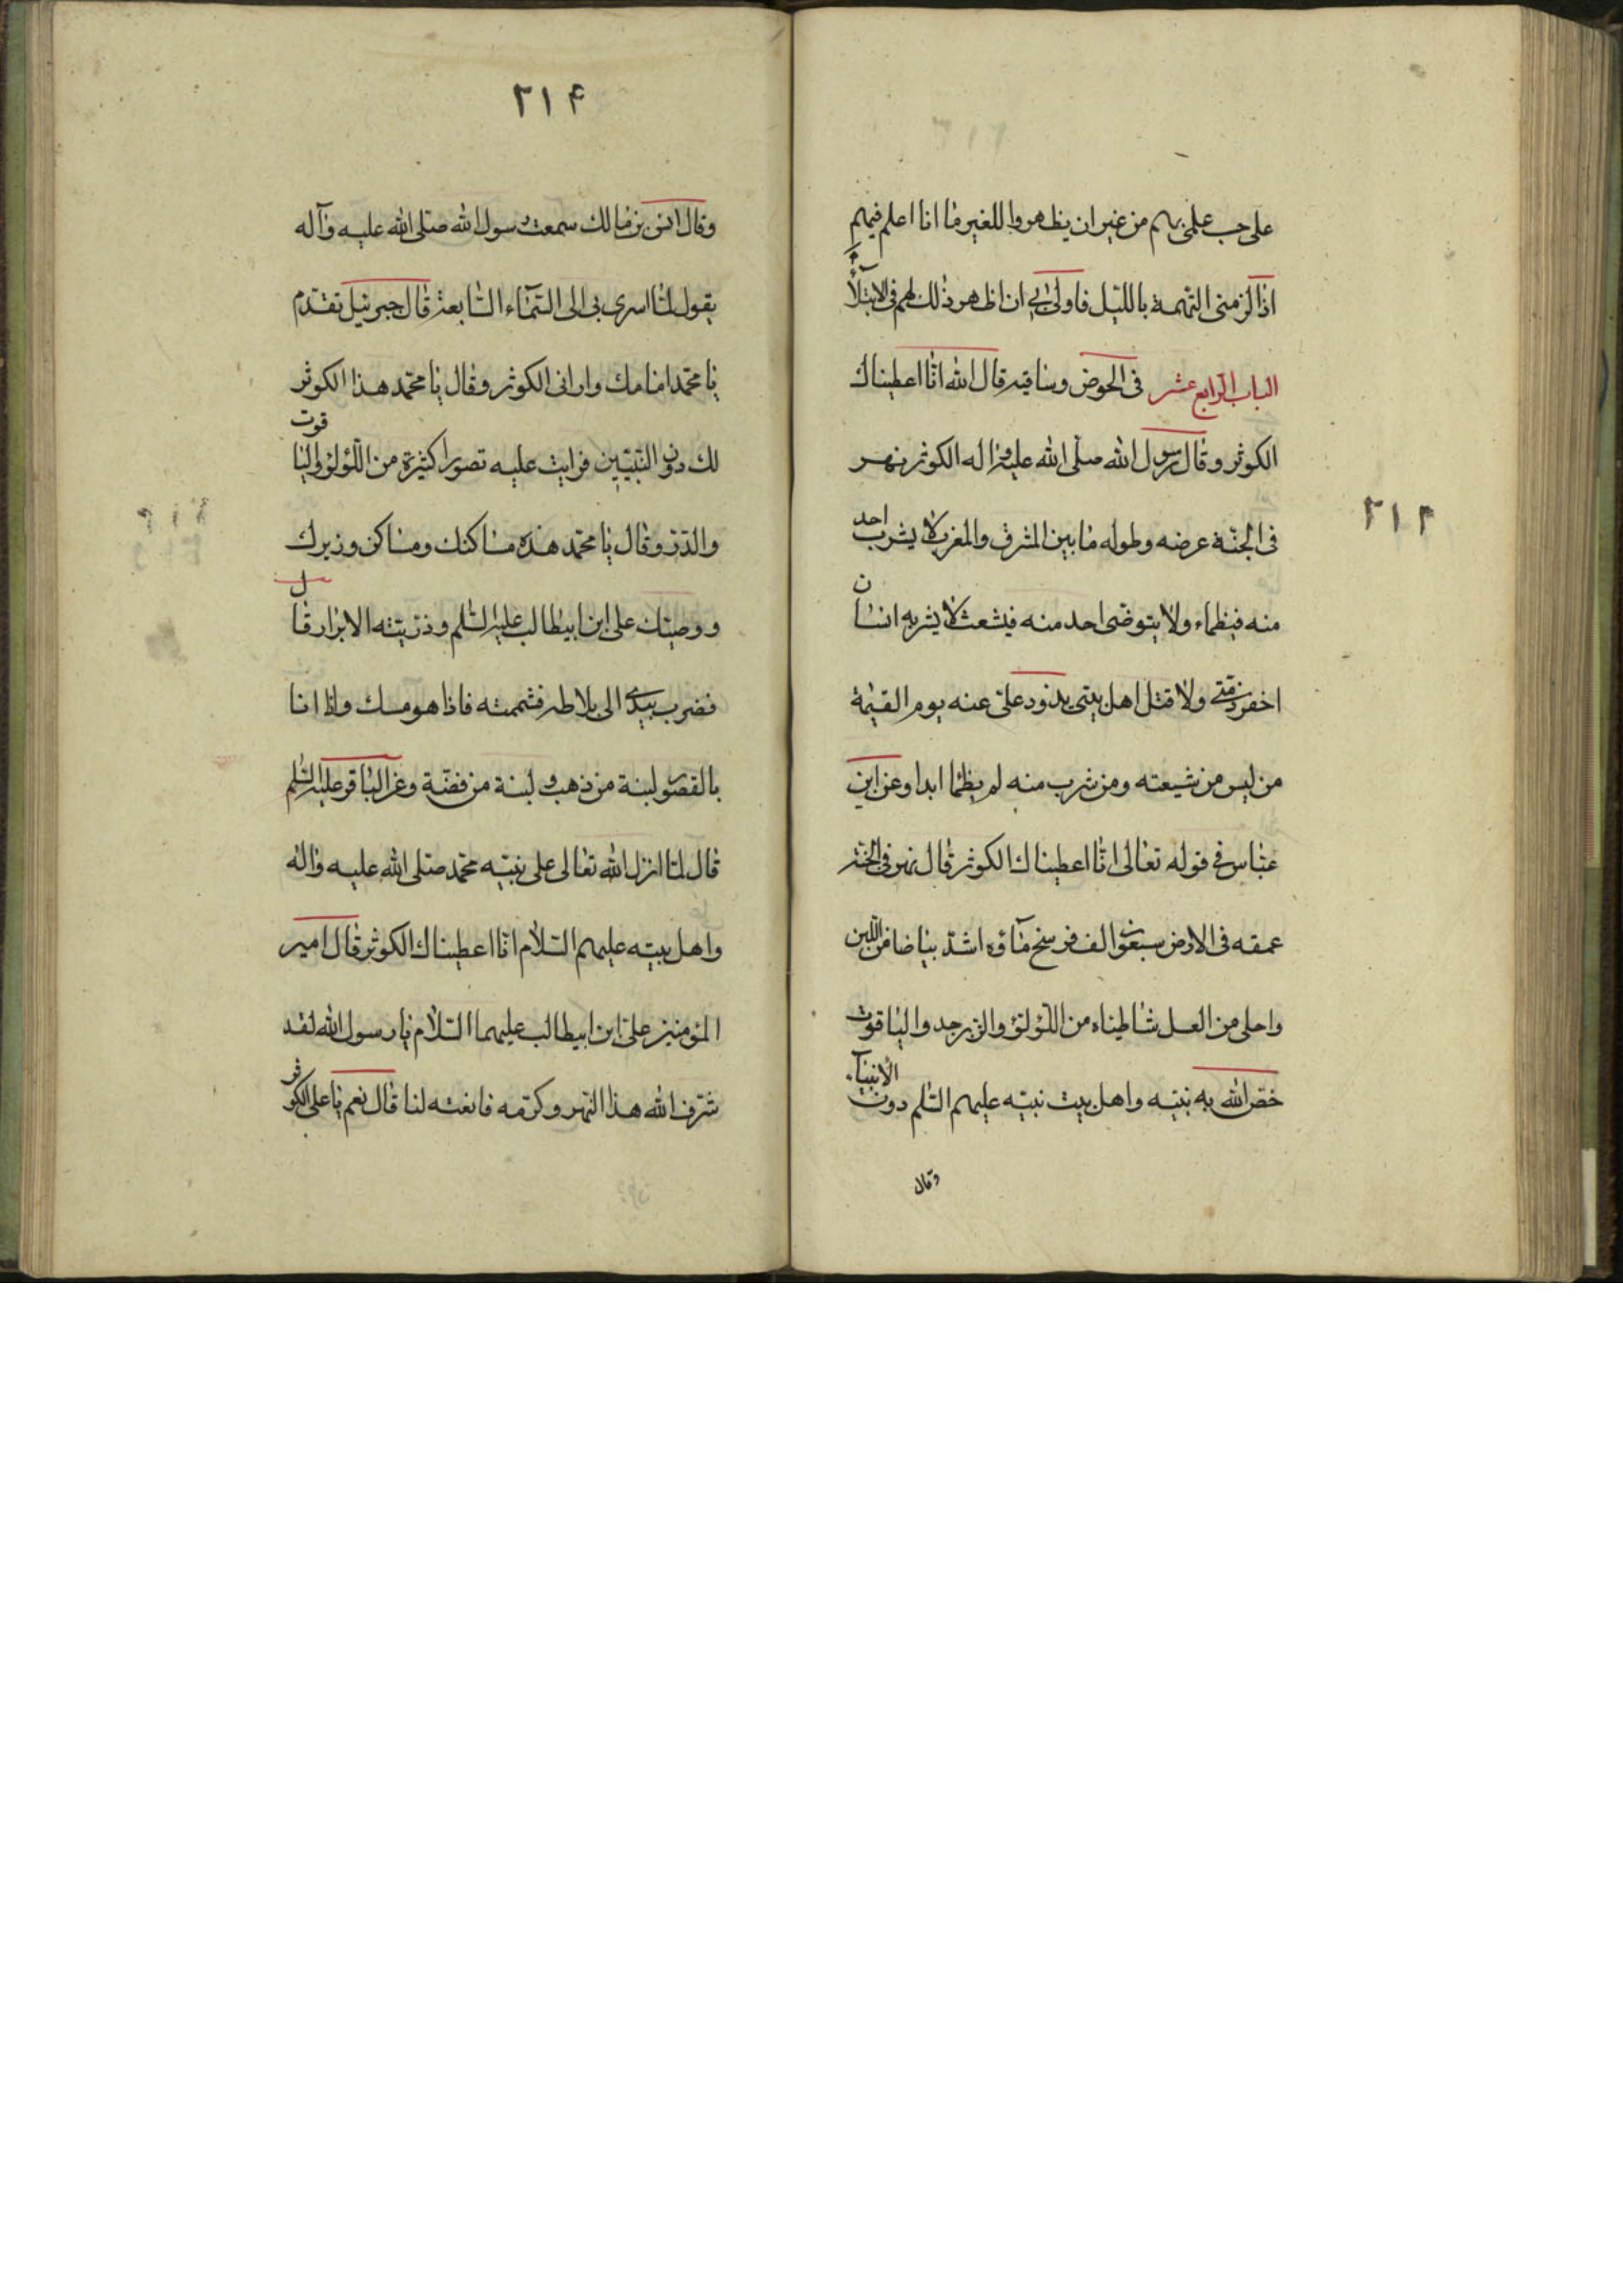 على حب علمى بهم من غير ان يظهروا للغير ما انا اعلم فيهم
اذا لزمنى التهمة بالليل فاولى بى ان اظهر ذلك لهم فى الابتلاء
الباب الرابع عشر فى الحوض وساقيه قال الله انا اعطيناك
الكوثر وقال رسول الله صلى الله عليه واله الكوثر نهر
٢١٣
فى الجنة عرضه وطوله ما بين المشرق والمغرب لا يشرب احد
منه فيظماء ولا يتوضى احد منه فيشعث لا يشربه انسان
اخفر ذمتى ولا قتل اهل بيتى يذود على عنه يوم القيمة
من ليس من شيعته ومن شرب منه لم يظما ابدا وعن ابن
عباس فى قوله تعالى انا اعطيناك الكوثر قال نهر فى الجنة
عمقه فى الارض سبعون الف فرسخ ماؤه اشد بياضا من اللبن
واحلى من العسل شاطيناه من اللؤلؤ والزبرجد والياقوت
خص الله به نبيه واهل بيت نبيه عليهم السلم دون الأنبياء
وقال
٢١۴
وقال انس بن مالك سمعت رسول الله صلى الله عليه وآله
يقول لما اسرى بى الى السماء السابعة قال جبرئيل تقدم
يا محمد امامك وارانى الكوثر وقال يا محمد هذا الكوثر
لك دون النبيين فرايت عليه قصورا كثيرة من اللؤلؤ والياقوت
والدر وقال يا محمد هذه مساكنك ومساكن وزيرك
ووصيك على ابن ابيطالب عليه السلم وذريته الابرار قال
فضرب بيدى الى بلاطه فشممته فاذا هو مسك واذا انا
بالقصور لبنة من ذهب و لبنة من فضة وعن الباقر عليه السلم
قال لما انزل الله تعالى على نبيه محمد صلى الله عليه واله
واهل بيته عليهم السلام انا اعطيناك الكوثر قال امير
المؤمنين على ابن ابيطالب عليهما السلام يا رسول الله لقد
شرف الله هذا النهر وكرمه فانعته لنا قال نعم يا على الكوثر